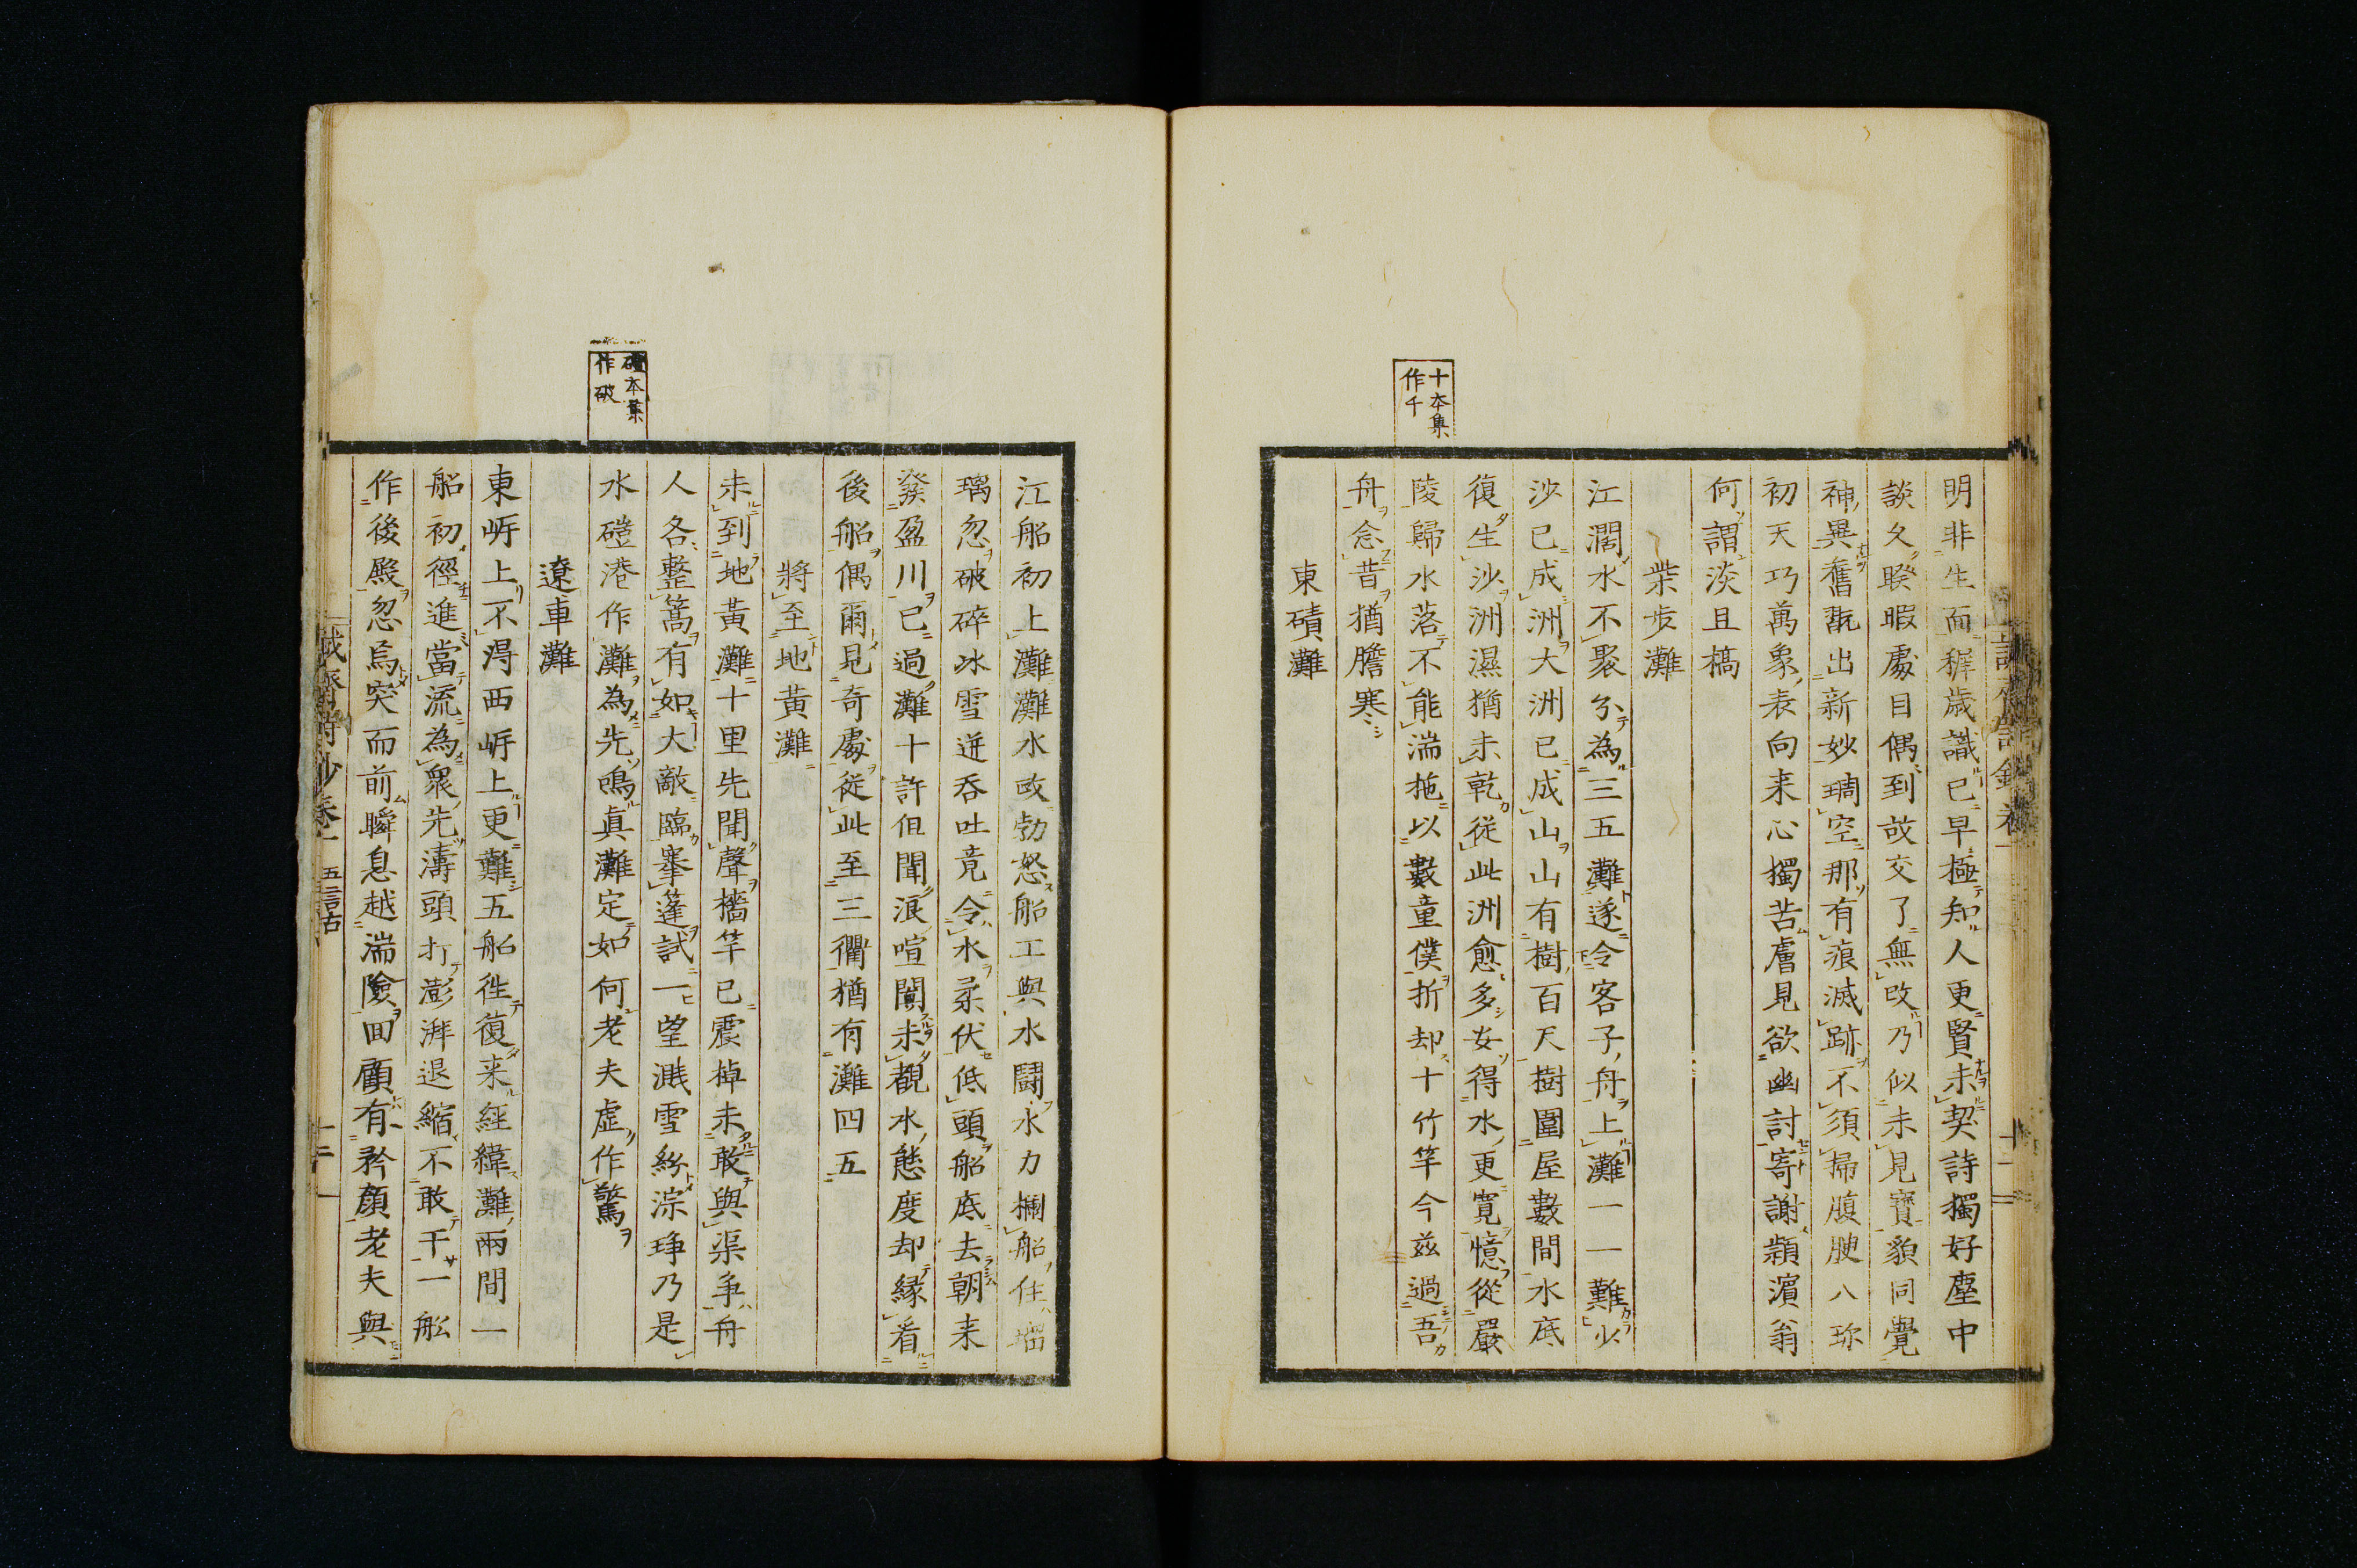 十本集
作千
明非生而稺歳識已早極知人更賢未契詩獨好塵中
談久暌暇處目偶到故交了無改乃似未見寶貌同覺
神異舊翫出新妙琱空那有痕滅跡不須掃腹腴八珎
初天巧萬象表向来心獨苦膚見欲幽討寄謝潁濵翁
何謂淡且槁
柴步灘
江濶水不聚分為三五灘遂令客子舟上灘一一難少
沙已成洲大洲已成山山有樹百天樹圍屋數間水底
復生沙洲濕猶未乾従此洲愈多安得水更寛憶從嚴
陵歸水落不能湍拖以數童僕折却十竹竿今兹過吾
舟念昔猶膽寒
東磧灘
礚本集
作破
江船初上灘灘水政勃怒船工與水鬪水力欄船住瑠
璃忽破碎氷雪迸吞吐竟令水柔伏低頭船底去朝来
發盈川已過灘十許但聞浪喧闐未覩水態度却縁看
後船偶爾見奇處従此至三衢猶有灘四五
將至地黄灘
未到地黄灘十里先聞聲檣竿已震掉未敢與渠争舟
人各整篙有如大敵臨搴篷試一望濺雪紛淙琤乃是
水礚港作灘為先鳴真灘定如何老夫虚作驚
遼車灘
東岍上不得西岍上更難五船徃復来經緯灘兩間一
船初徑進當流為衆先濤頭打澎湃退縮不敢干一舩
作後殿忽焉突而前瞬息越湍險回顧有矜顔老夫與
誠齋詩鈔卷一 五言古